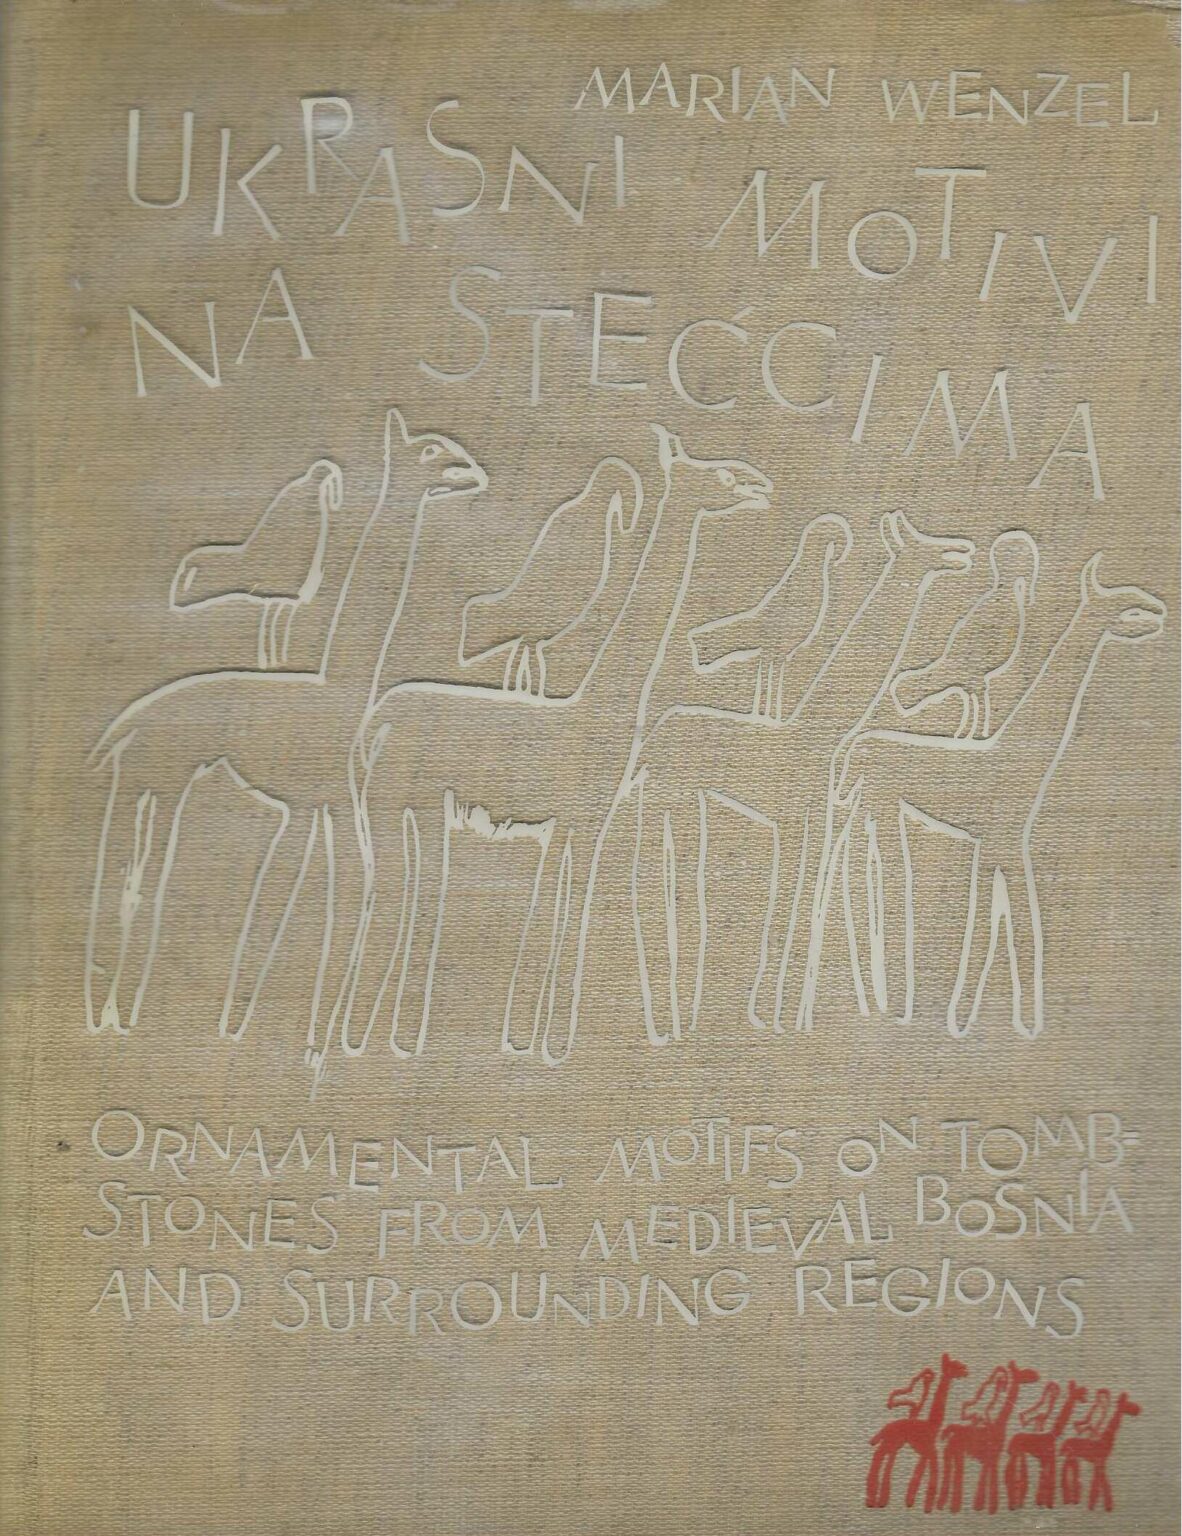 MARIAN WENZEL
UKRASNI MOTIVI
NA STEĆCIMA
ORNAMENTAL MOTIFS ON TOMB=
STONES FROM MEDIEVAL BOSNIA
AND SURROUNDING REGIONS